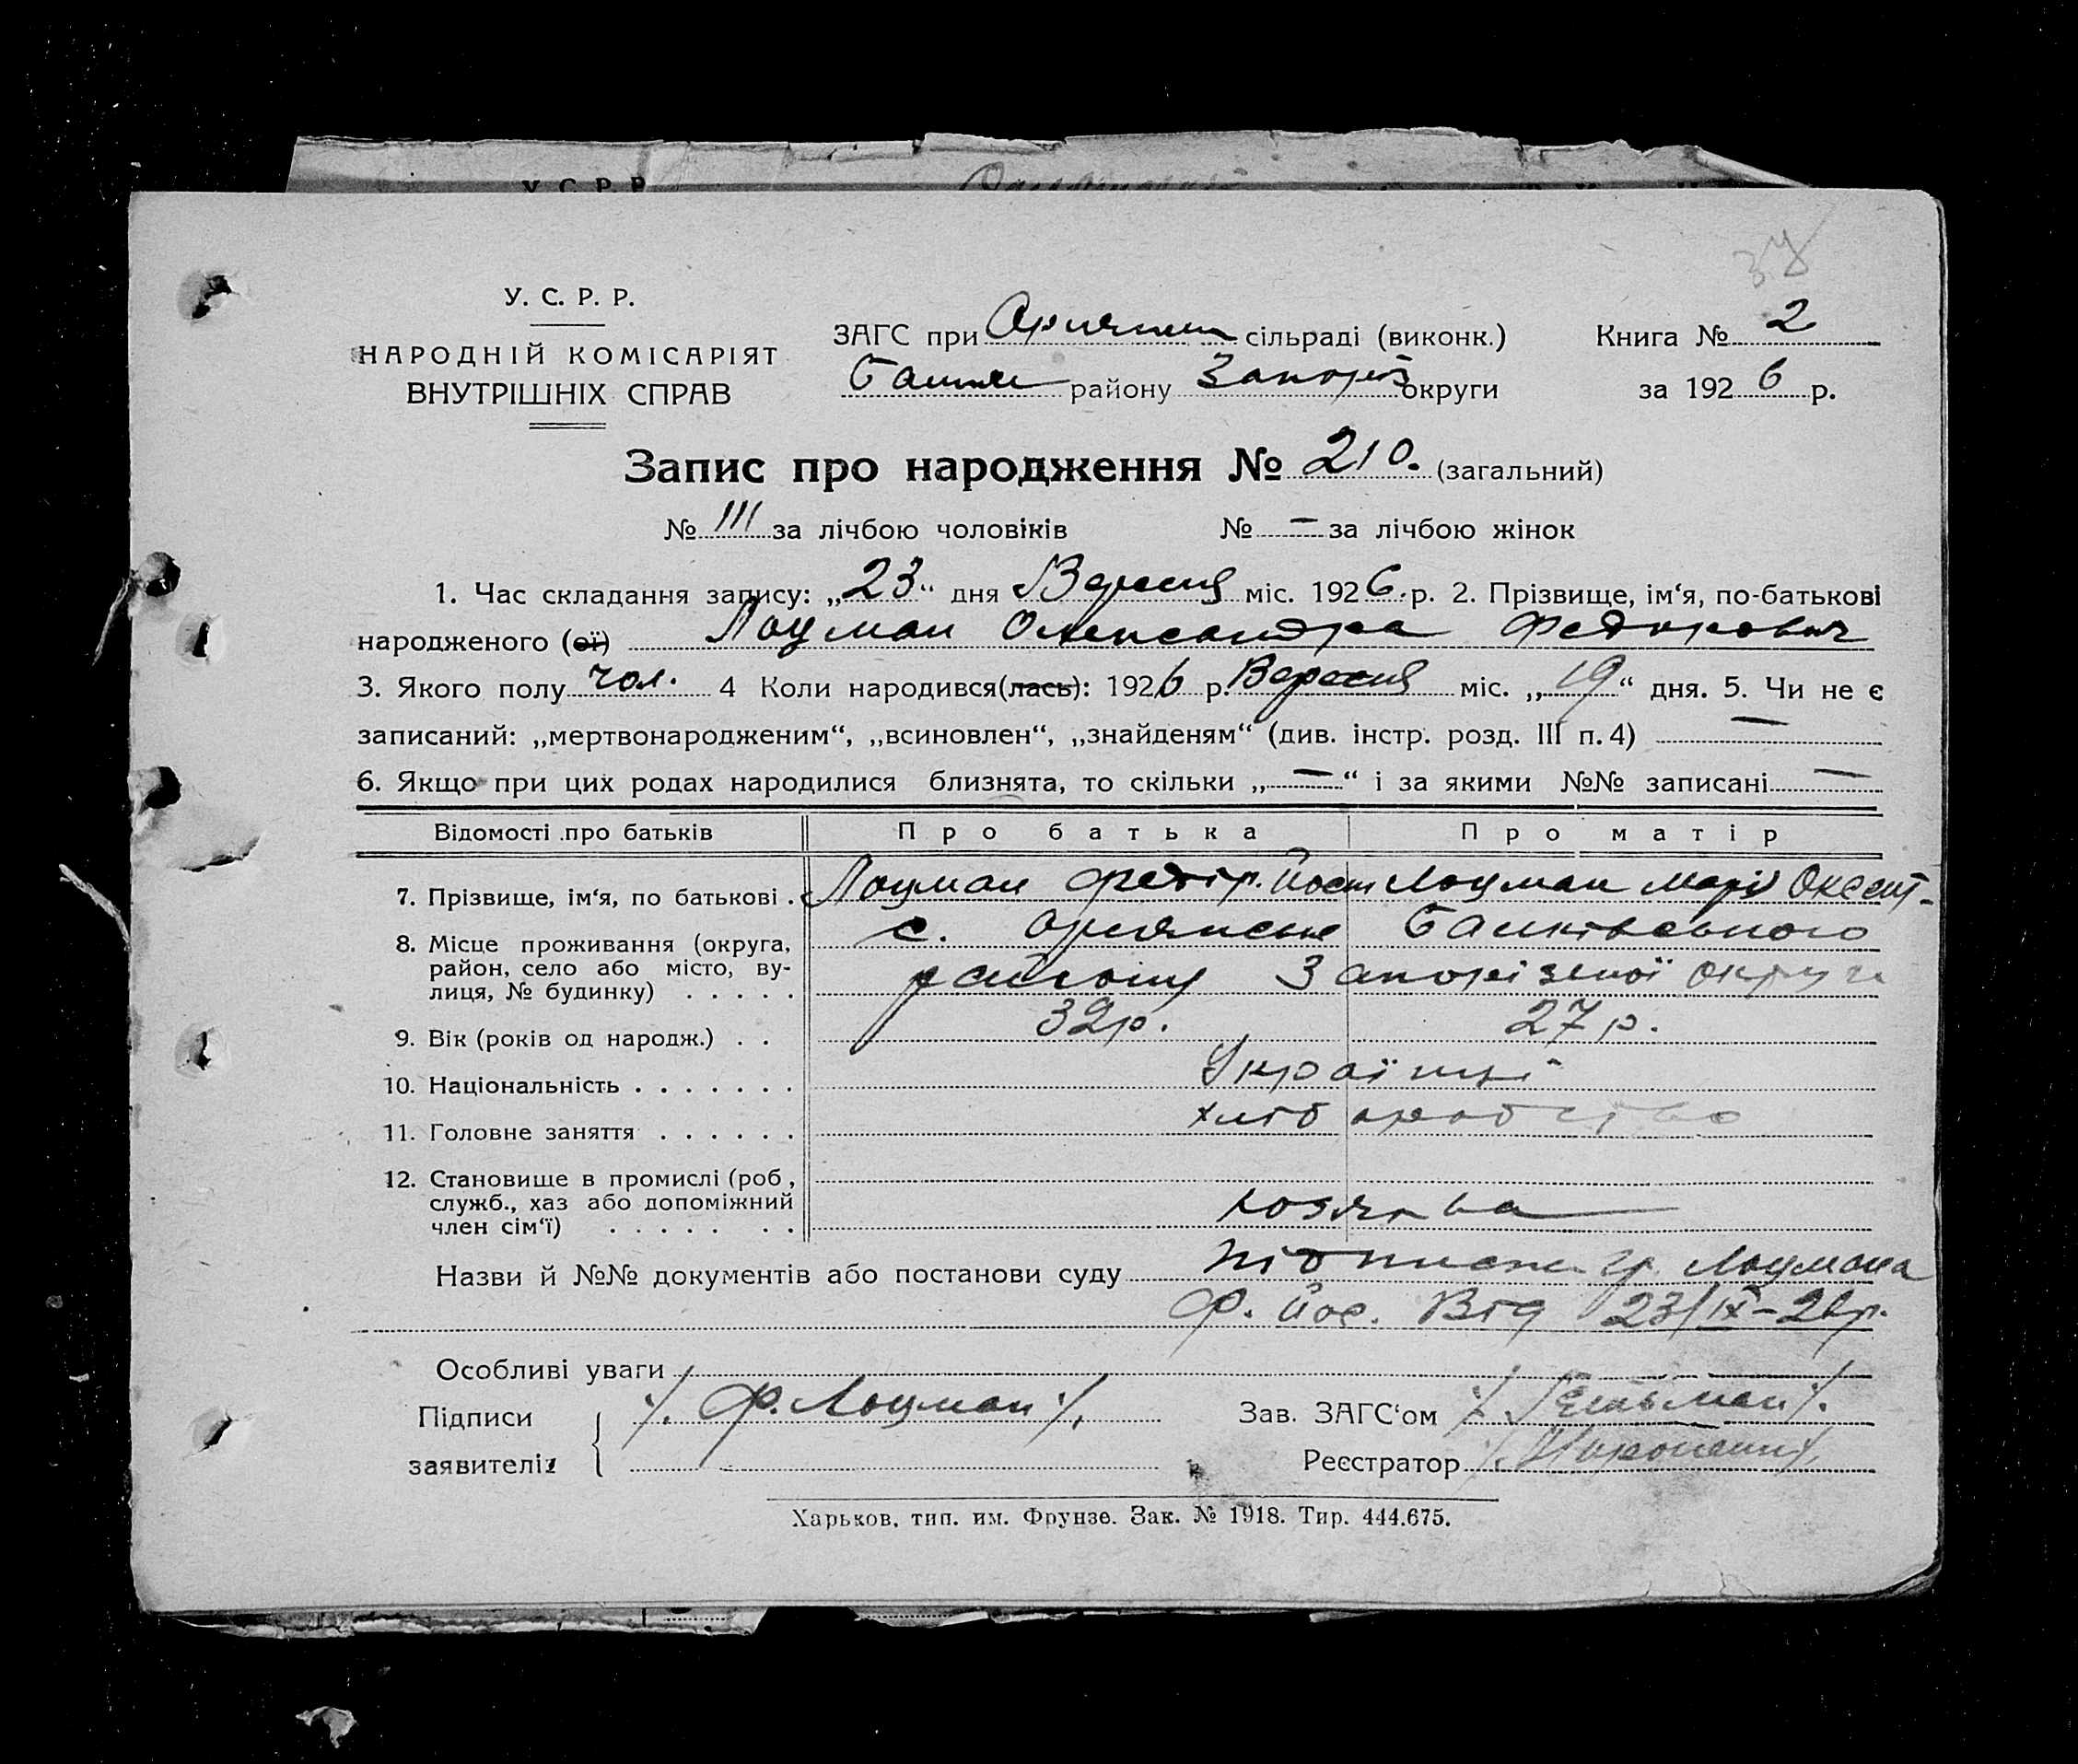 У. С. Р. Р.
НАРОДНІЙ КОМІСАРІЯТ
ВНУТРІШНІХ СПРАВ
ЗАГС при сільраді (виконк.)
району Запоріз округи
Книга № 2
за 1926 р.
Запис про народження № 210. (загальний)
№ 111 за лічбою чоловіків № — за лічбою жінок
1. Час складання запису: „23“ дня Вересня міс. 1926 р. 2. Прізвище, ім‘я, по-батькові
народженого (ої) Лоцман Олександра Федорович
3. Якого полу чол. 4 Коли народився(лась): 1926 р. Вересня міс. „19“ дня. 5. Чи не є
записаний: „мертвонародженим“, „всиновлен“, „знайденям“ (див. інстр. розд. III п. 4) —
6. Якщо при цих родах народилися близнята, то скільки „—“ і за якими №№ записані —
Відомості про батьків Про батька Про матір
7. Прізвище, ім‘я, по батькові . Лоцман Федір. Йосип Лоцман Марія Оксент-
8. Місце проживання (округа, с. Оріянське
район, село або місто, ву- району Запорізької округи
лиця, № будинку) . . . . .
9. Вік (років од народж.) . . 32р. 27р.
10. Національність . . . . . . . Українці
11. Головне заняття . . . . . . хліборобство
12. Становище в промислі (роб,
служб., хаз або допоміжний
член сім‘ї) . . . . . . .
Назви й №№ документів або постанови суду гр. Лоцмана
Ф. Йос. Від 23/IX-26р.
Особливі уваги
Підписи /. Ф. Лоцман /. Зав. ЗАГС‘ом /. Гетьман /.
заявителів Реєстратор
Харьков, тип. им. Фрунзе. Зак. № 1918. Тир. 444.675.